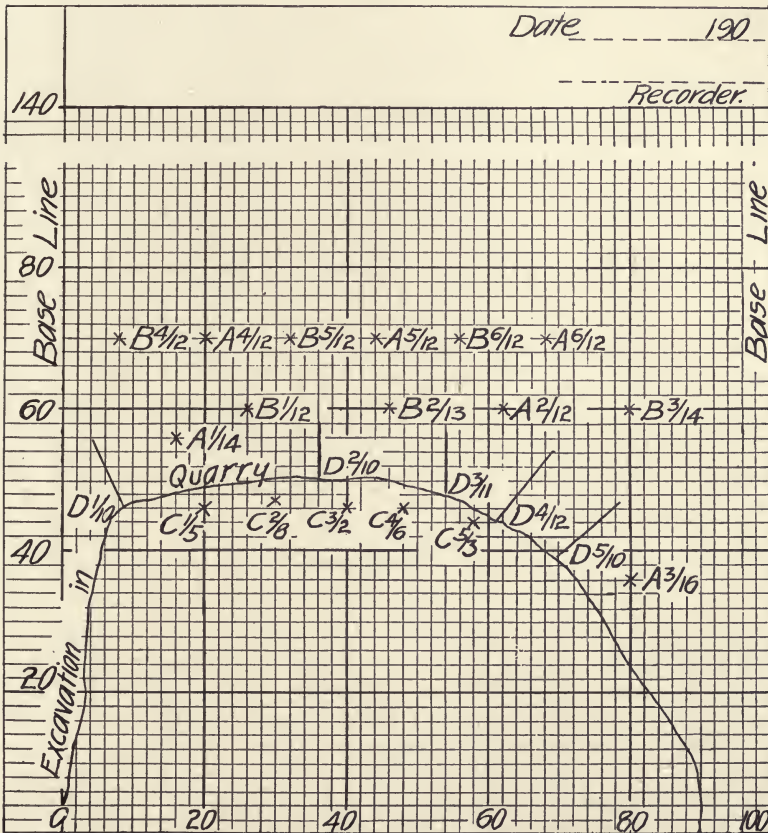 Date 190
Recorder.
140
Base Line
Base - Line
80
B4/12 A4/12 B5/12 A5/12 B6/12 A6/12
60
B1/12 B2/13 A2/12 B3/14
A1/14
Quarry D2/10
D3/11
D1/10 C1/5 C2/8 C3/2 C4/6 C5/3 D4/12
40
D5/10 A3/16
Excavation in
20
0 20 40 60 80 100